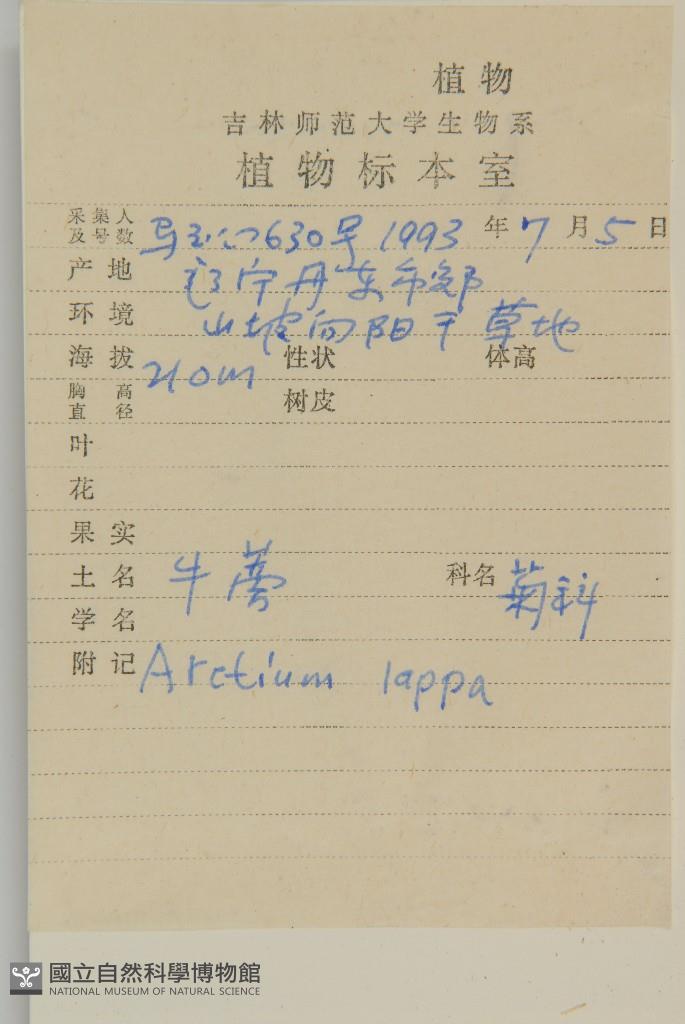 植物
吉林师范大学生物系
植物标本室
采集人及号数 马 630号 1993年7月5日
产地 辽宁丹东市郊
环境 山坡向阳干草地
海拔 210m 性状 体高
胸高直径 树皮
叶
花
果实
土名 牛蒡 科名 菊科
学名
附记 Arctium lappa
國立自然科學博物館
NATIONAL MUSEUM OF NATURAL SCIENCE